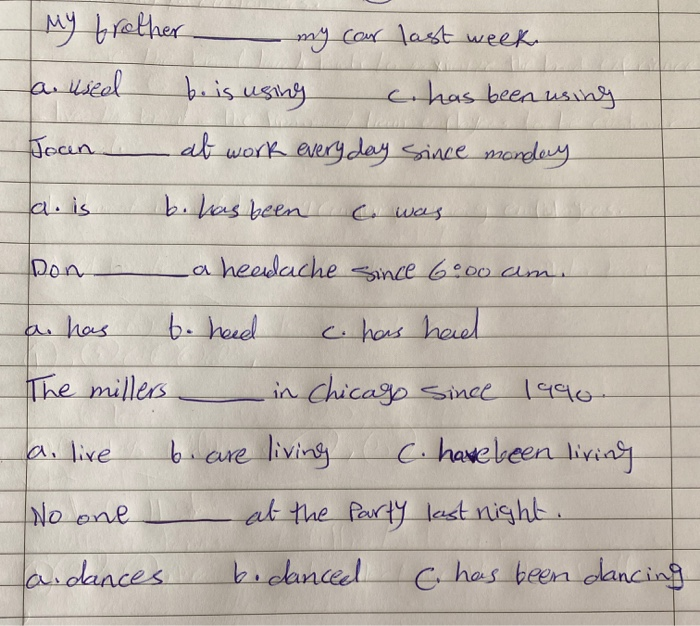 My brother ______ my car last week.
a. used b. is using c. has been using
Joan ______ at work everyday since monday
a. is b. has been c. was
Don ______ a headache since 6:00 am.
a. has b. had c. has had
The millers ______ in Chicago since 1990.
a. live b. are living C. have been living
No one ______ at the Party last night.
a. dances b. danced C. has been dancing